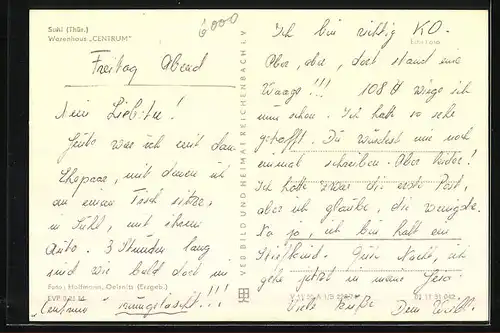 Suhl (Thür.)
Warenhaus „CENTRUM"
6000
Freitag Abend
Mein Liebster!
Heute war ich mit dem
Ehepaar, mit denen ich
an einem Tisch sitze,
in Suhl, mit ihrem
Auto. 3 Stunden lang
sind wir bald dort im
Foto: Hoffmann, Oelsnitz (Erzgeb.)
EVP 0,21 M
"Centrum" rumgelatscht!!!
VEB BILD UND HEIMAT REICHENBACH I. V.
Ich bin richtig KO.
Echt Foto
Aber, aber, dort stand eine
Waage!!! 108 ℔ wiege ich
nun schon. Ich hatte so sehr
gehofft, Du würdest mir noch
einmal schreiben. Aber leider!
Ich hatte zwar die erste Post,
aber ich glaube, die wenigste.
Na ja, ich bin halt ein
Stiefkind. Gute Nacht, ich
gehe jetzt in meine Heia.
01 11 31 042
Viele Küße Dein